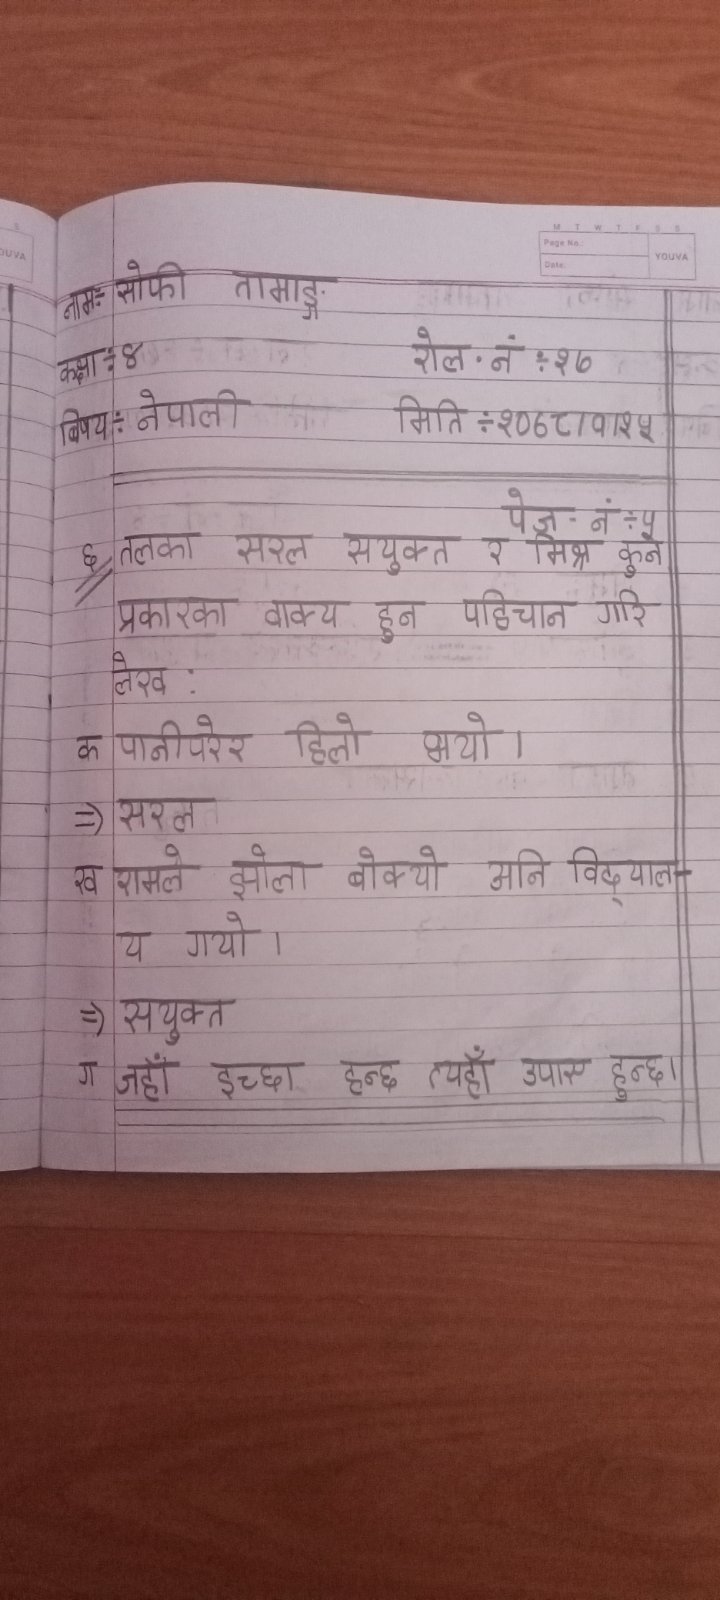 S
YOUVA
M T W T F S S
Page No.:
Date:
YOUVA
नामः सोफी तामाङ्ग
कक्षा ÷ ४ रोल . नं ÷ २७
बिषयः नेपाली मिति ÷ २०७८।१।२५
पेज . नं ÷ ५
६ तलका सरल सयुक्त र मिश्र कुन
प्रकारका वाक्य हुन पहिचान गरि
लेख :
क पानीपरेर हिलो भयो ।
⇒ सरल
ख रामले झोला बोक्यो अनि विद्याल-
य गयो ।
⇒ सयुक्त
ग जहाँ इच्छा हन्छ त्यहाँ उपाए हुन्छ।